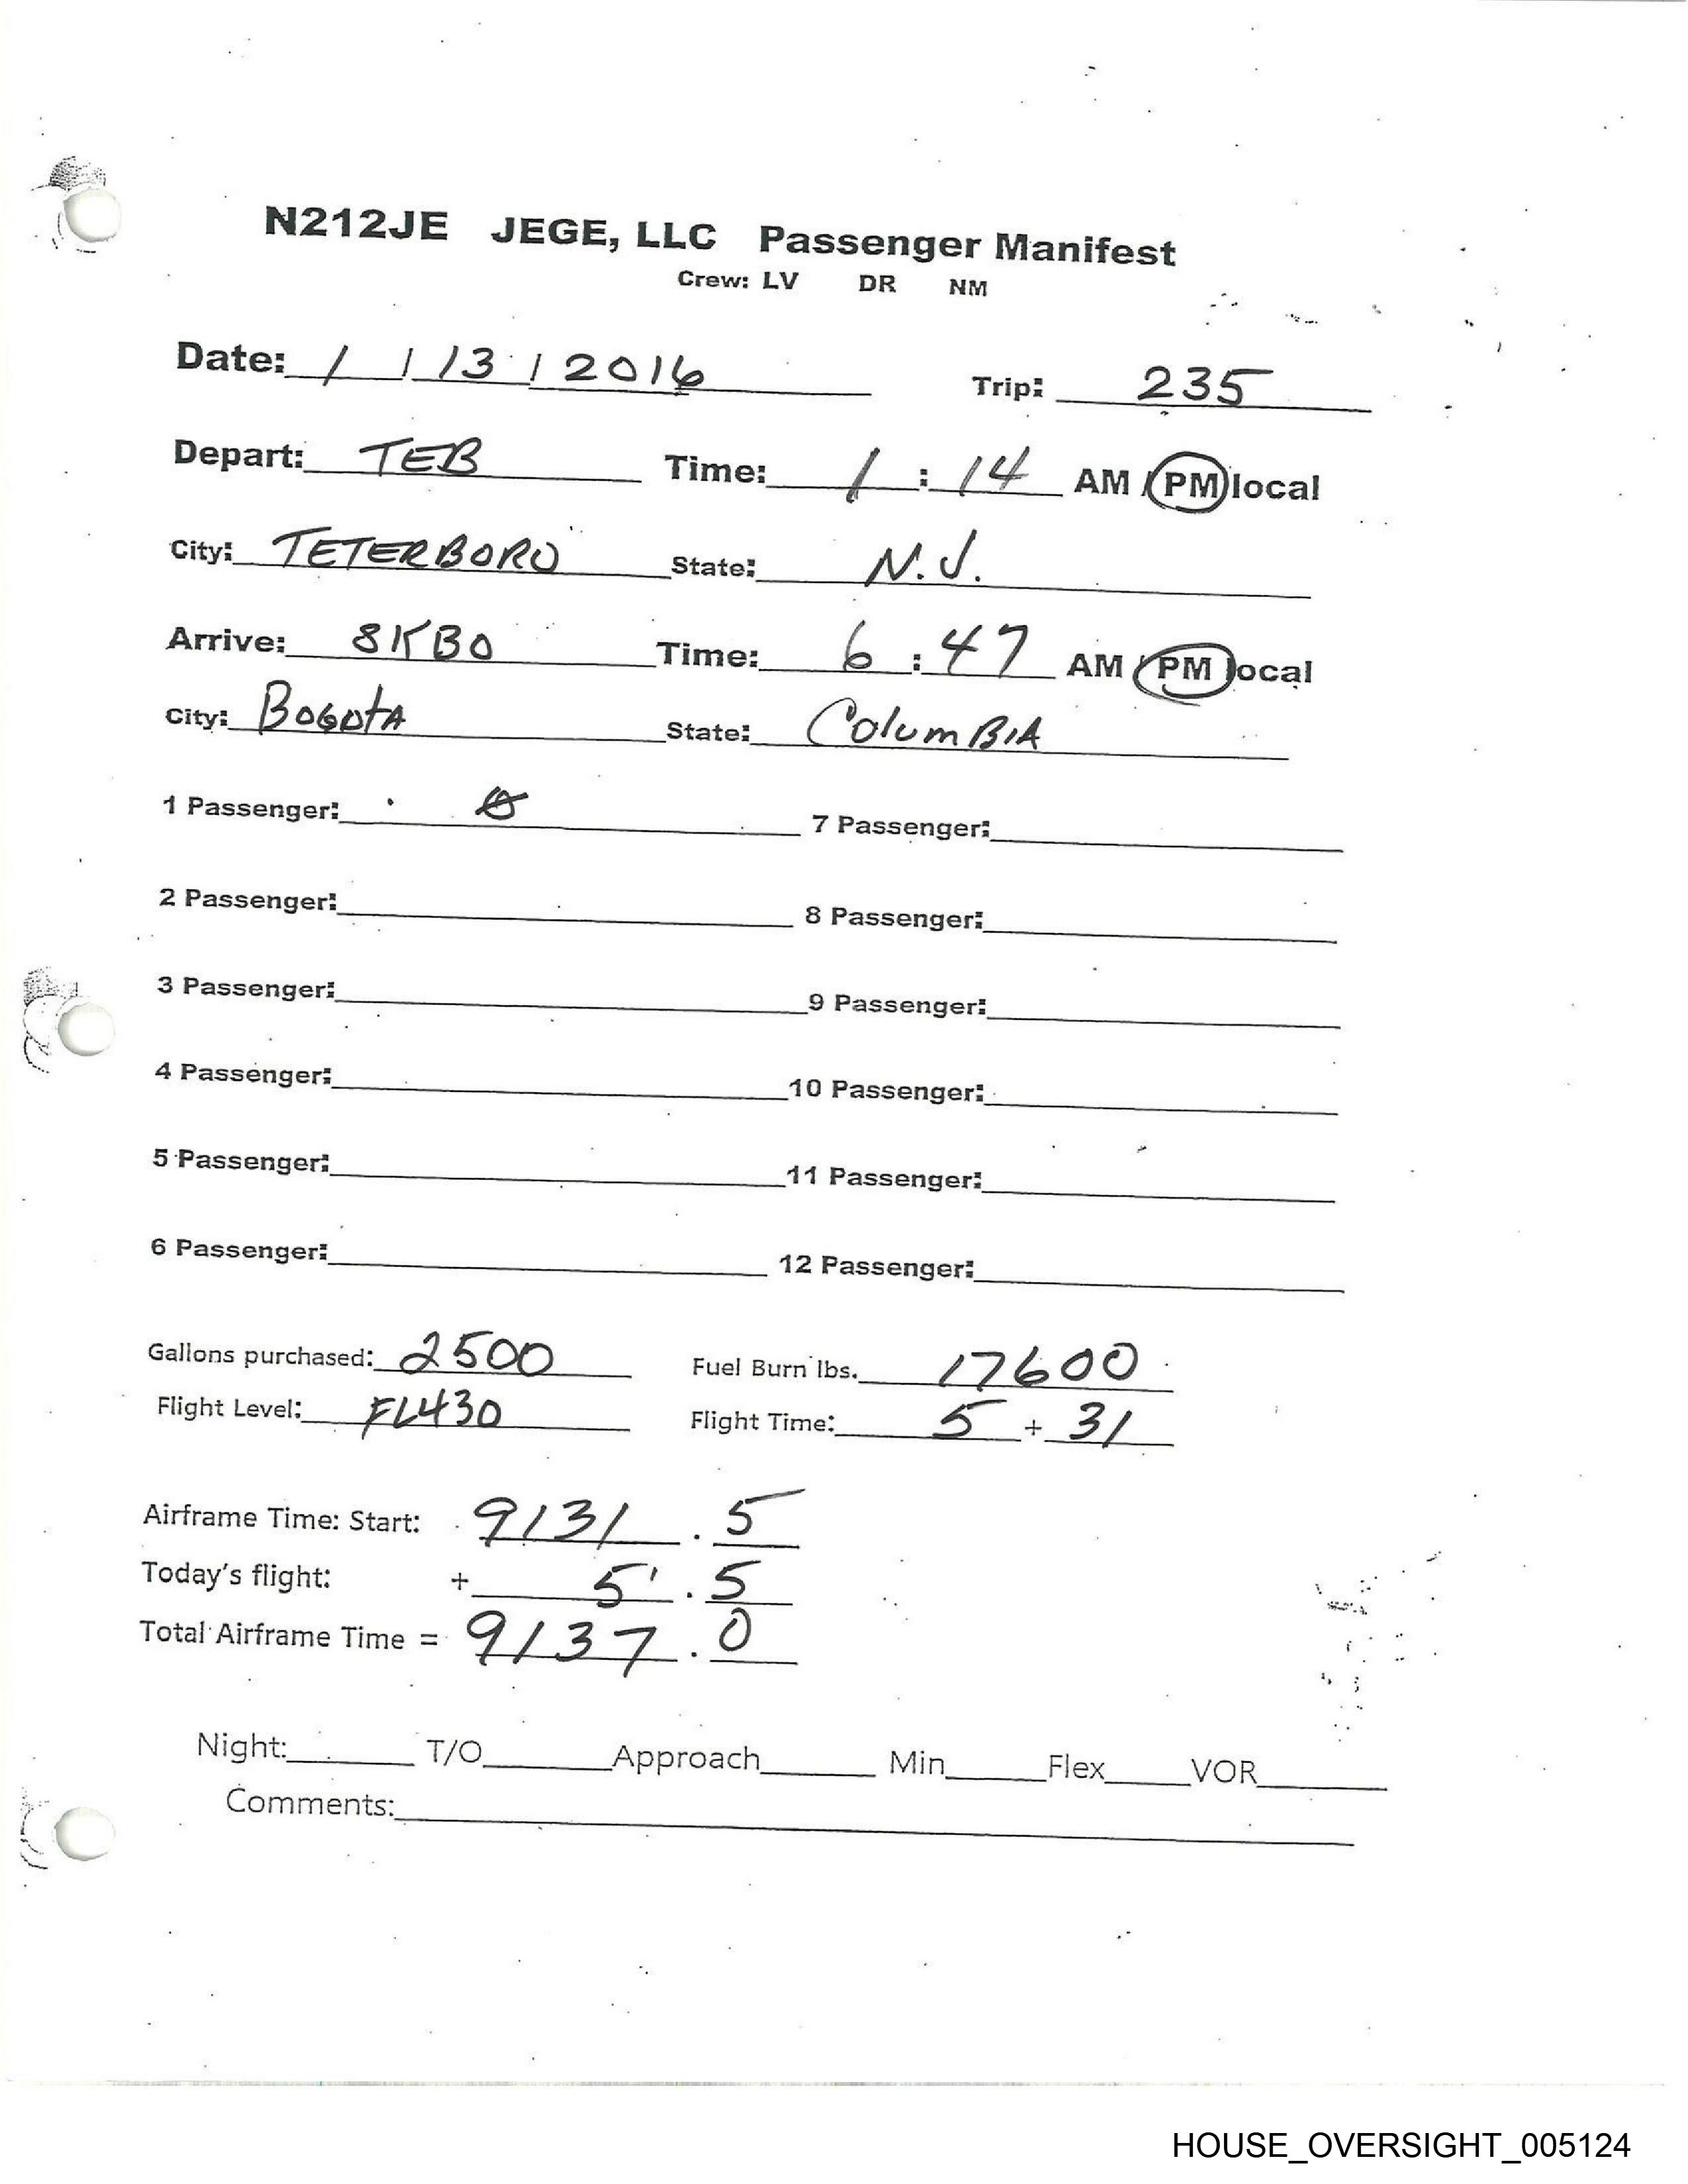 N212JE JEGE, LLC Passenger Manifest
Crew: LV DR NM
Date: 1 / 13 / 2016 Trip: 235
Depart: TEB Time: 1 : 14 AM / PM local
City: TETERBORO State: N.J.
Arrive: SKBO Time: 6 : 47 AM / PM local
City: BOGOTA State: COLUMBIA
1 Passenger: 7 Passenger:
2 Passenger: 8 Passenger:
3 Passenger: 9 Passenger:
4 Passenger: 10 Passenger:
5 Passenger: 11 Passenger:
6 Passenger: 12 Passenger:
Gallons purchased: 2500 Fuel Burn lbs. 17600
Flight Level: FL430 Flight Time: 5 + 31
Airframe Time: Start: 9131 . 5
Today's flight: + 5 . 5
Total Airframe Time = 9137 . 0
Night: T/O Approach Min Flex VOR
Comments:
HOUSE_OVERSIGHT_005124